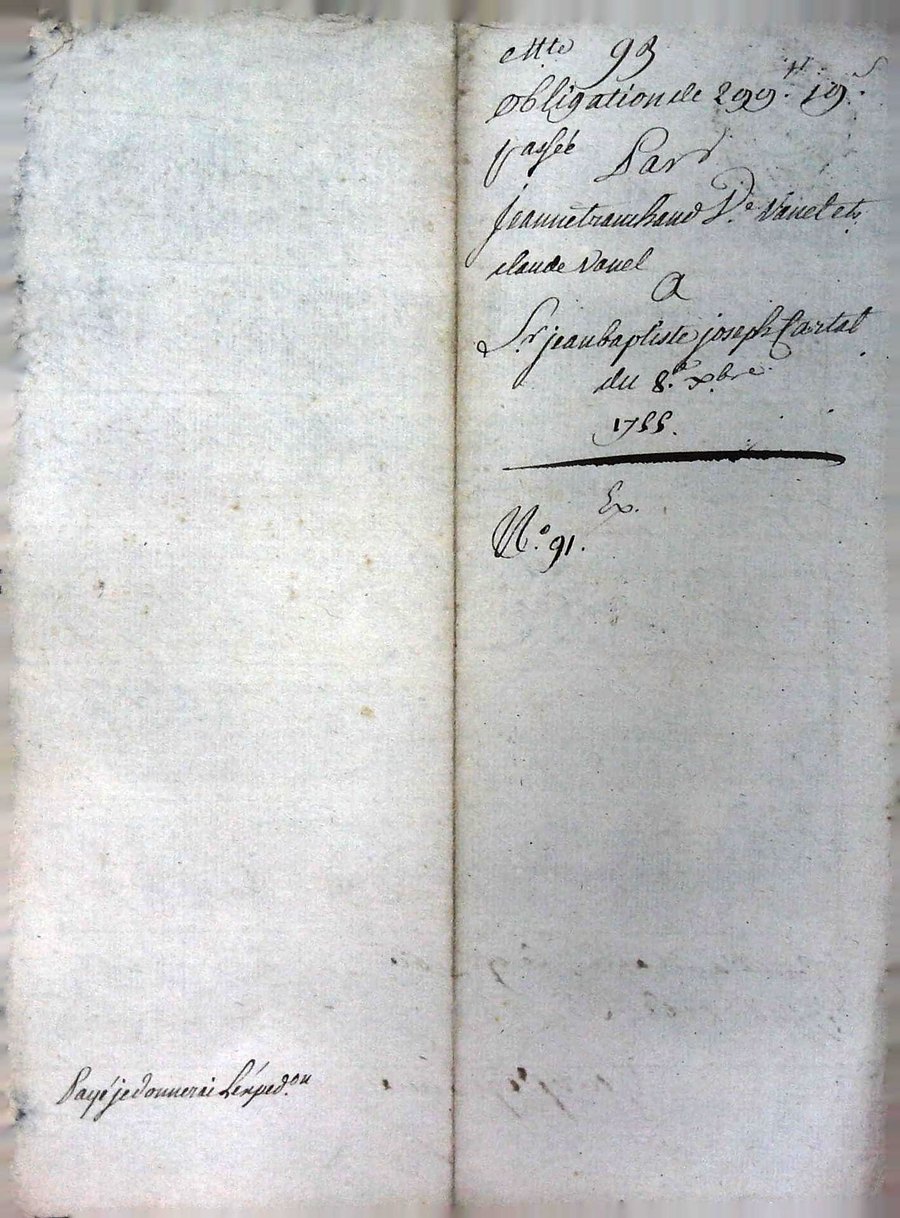 Cotte 93
obligation de 299.# 19.s
passée Par
jeanne trambaud V.e Vanel et
claude Vanel
A
S.r jean baptiste joseph Cartal
du 8.e xbre
1755.
Ex.
N.o 91.
Payé je donnerai L'exped.on